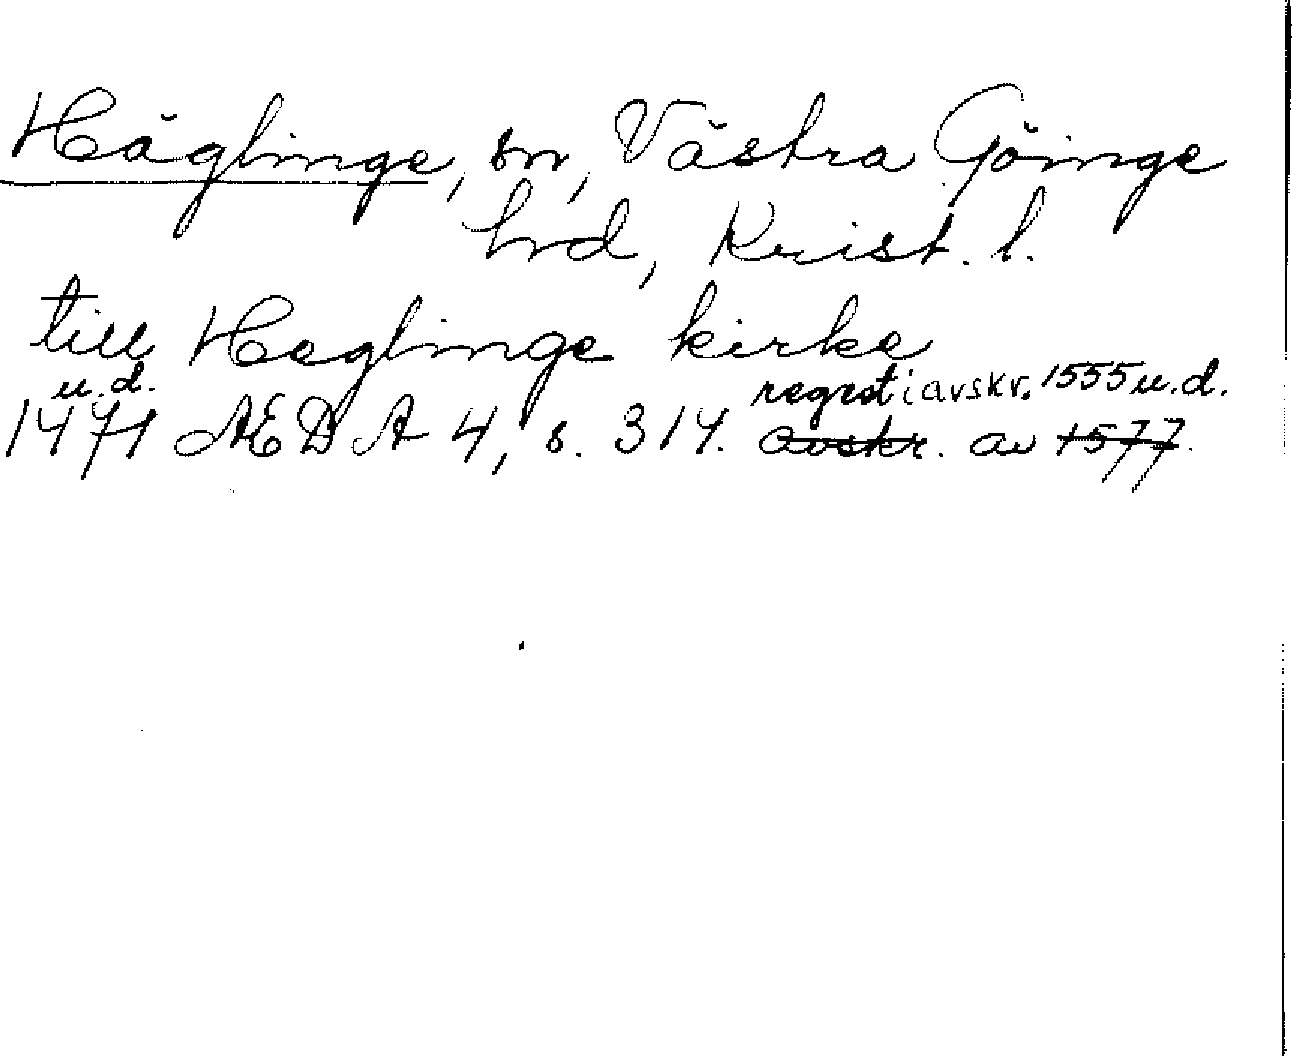 Häglinge, sn, Västra Göinge
hrd, Krist. l.
till Heglinge kirke
u.d. regest i avskr. 1555 u.d.
1471 ÆDA 4, s. 314. avskr. av 1577.